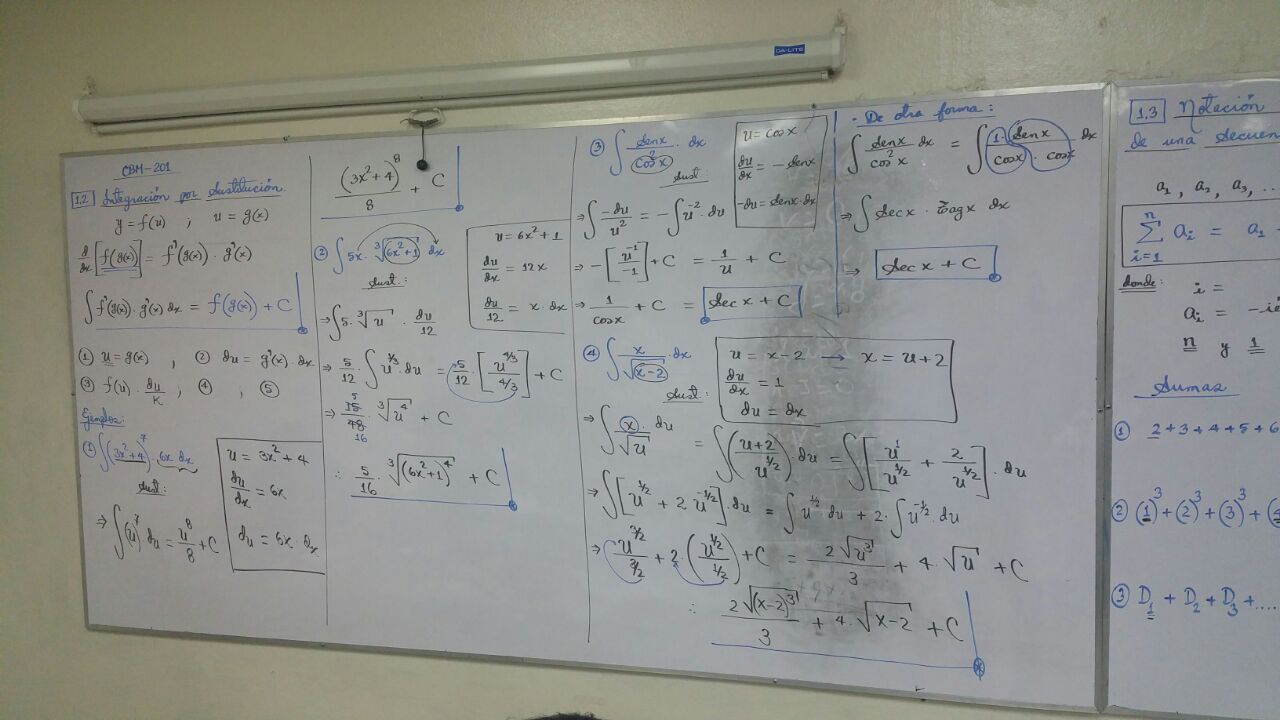 DA-LITE
CBM-201
1.2 Integración por sustitución.
y = f(u) ; u = g(x)
d/dx [f(g(x))] = f'(g(x)) · g'(x)
∫ f'(g(x)) · g'(x) dx = f(g(x)) + C
① u = g(x) , ② du = g'(x) · dx
③ f(u) · du/K , ④ ; ⑤
Ejemplos:
① ∫ (3x² + 4)⁷ · 6x dx
Sust:
⇒ ∫ (u)⁷ du = u⁸/8 + C
u = 3x² + 4
du/dx = 6x
du = 6x · dx
(3x² + 4)⁸/8 + C
② ∫ 5x · ∛(6x² + 1) dx
Sust:
u = 6x² + 1
du/dx = 12x
du/12 = x · dx
⇒ ∫ 5 · ∛u · du/12
⇒ 5/12 · ∫ u^(1/3) · du = 5/12 [u^(4/3)/(4/3)] + C
⇒ 15/48 · ∛(u⁴) + C
5
16
∴ 5/16 · ∛((6x² + 1)⁴) + C
③ ∫ senx/cos²x · dx
Sust:
u = cosx
du/dx = - senx
-du = senx · dx
⇒ ∫ -du/u² = - ∫ u⁻² · du
⇒ - [u⁻¹/-1] + C = 1/u + C
⇒ 1/cosx + C = Sec x + C
④ ∫ x/√(x-2) · dx
Sust:
u = x - 2 → x = u + 2
du/dx = 1
du = dx
⇒ ∫ x/√u · du = ∫ ((u+2)/u^(1/2)) · du = ∫ [u¹/u^(1/2) + 2/u^(1/2)] · du
⇒ ∫ [u^(1/2) + 2 u^(-1/2)] · du = ∫ u^(1/2) · du + 2 · ∫ u^(-1/2) · du
⇒ u^(3/2)/(3/2) + 2 · (u^(1/2)/(1/2)) + C = 2√(u³)/3 + 4 · √u + C
∴ 2√((x-2)³)/3 + 4 · √(x-2) + C
· De otra forma:
∫ senx/cos²x dx = ∫ 1 · senx/(cosx · cosx) dx
⇒ ∫ Sec x · Tagx dx
⇒ Sec x + C
1.3 Notación
de una secuen
a₁ , a₂ , a₃, ...
n ∑ i=1 aᵢ = a₁ +
donde: i =
aᵢ =
n y 1
Sumas
① 2+3+4+5+6
② (1)³+(2)³+(3)³+(4
③ D₁ + D₂ + D₃ + ....